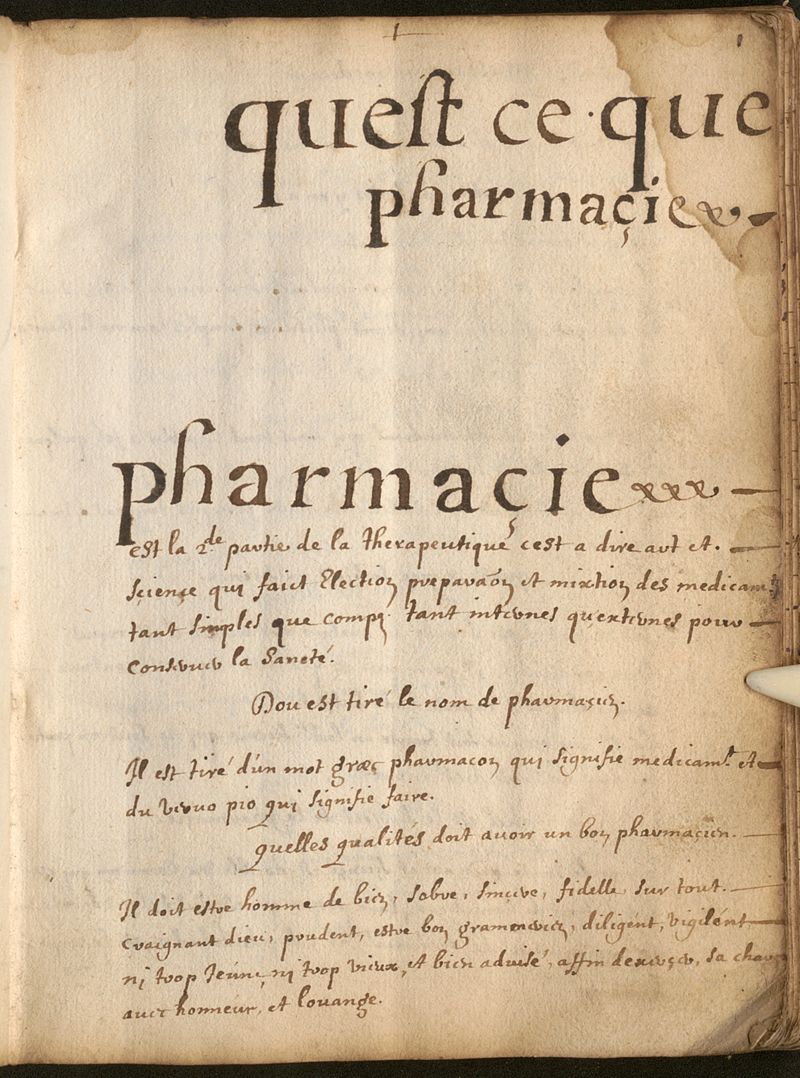 1
quest ce·que
pharmaçie
pharmaçie
est la 2.de partie de la therapeutique cest a dire art et.
sçiençe qui faict Election preparaõn et mixtion des medicam.ts
tant simples que comp: tant internes qu'externes pour
Conserver la Saneté.
Dou est tiré le nom de pharmaçie.
Il est tiré d'un mot græc pharmacon qui signifie medicam.t et
du verve pio qui signifie faire.
quelles qualités doit avoir un bon pharmaçien.
Il doit estre homme de bien, sobre, sincere, fidelle sur tout.
Craignant dieu, prudent, estre bon gramenerien, diligent, vigilént
ni trop Jeune, ni trop vieux, et bien advisé, affin dexerçer, sa char
avec honneur, et louange.